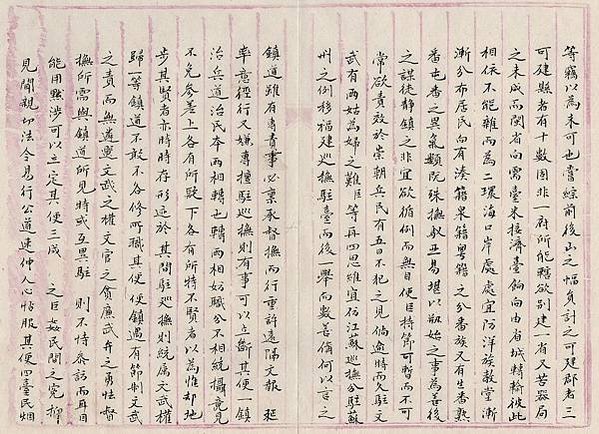 等竊以為未可也嘗綜前後山之幅員計之可建郡者三
可建縣者有十數固非一府所能轄欲別建一省又苦器局
之未成而閩省向需臺米接濟臺餉向由省城轉輸彼此
相依不能離而為二環海口岸處處宜防洋族教堂漸
漸分布居民向有漳籍泉籍粵籍之分番族又有生番熟
番屯番之異氣類既殊撫馭匪易堪以創始之事為善後
之謀徒靜鎮之非宜欲循例而無自使臣持節可暫而不可
常欲責效於崇朝兵民有五日不犯之見倘逾時而久駐文
武有兩姑為婦之難臣等再四思維宜仿江蘇巡撫分駐蘇
州之例移福建巡撫駐臺而後一舉而數善備何以言之
鎮道雖有專責事必稟承督撫而行重許遠隔文報 延
率意徑行又嫌專擅駐巡撫則有事可以立斷其便一鎮
治兵道治民本兩相轉也轉兩相妒職分不相統攝意見
不免參差上各有所疑下各有所恃不賢者以為推卸地
步其賢者亦時時存形迹於其間駐巡撫則統屬文武權
歸一尊鎮道不敢不各修所職其便二鎮道有節制文武
之責而無遴選文武之權文官之貪廉武弁之勇怯督
撫所需與鎮道所見時或互異駐 則不恃采訪而耳目
能用黜涉可以立定其便三 之巨姦民間之冤抑
見聞親切法令易行公道速伸人心帖服其便四臺民煙